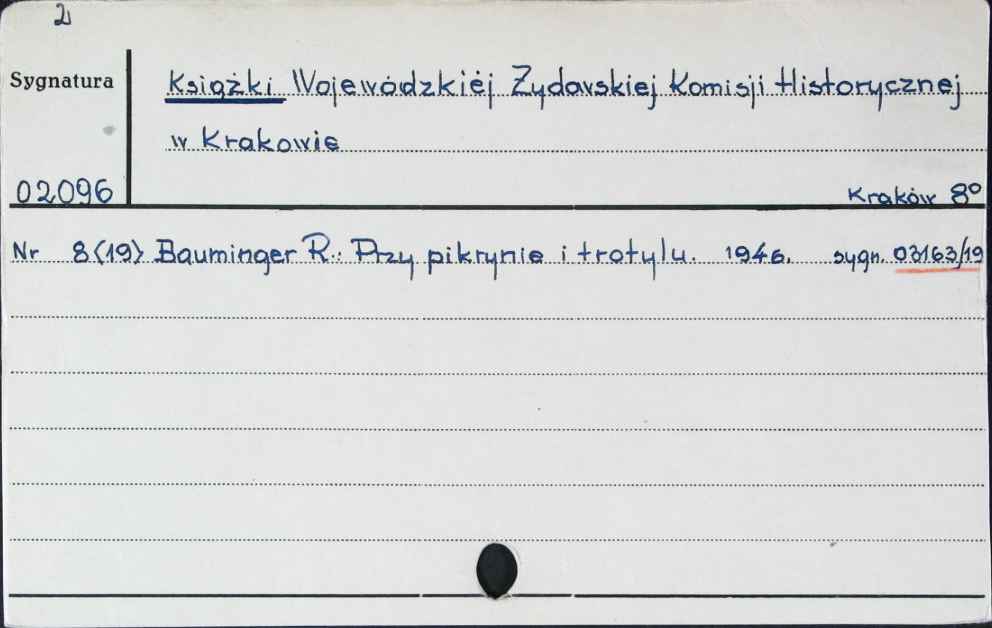 2
Sygnatura Książki Wojewódzkiej Żydowskiej Komisji Historycznej
w Krakowie
02096 Kraków 8°
Nr 8(19) Bauminger R.: Przy pikrynie i trotylu. 1946. sygn. 03163/19